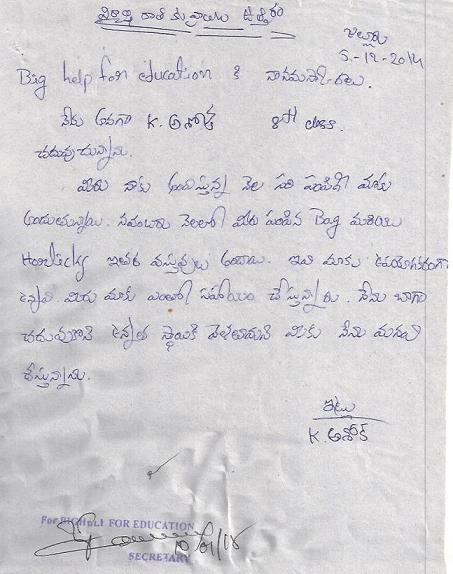 విద్యార్థి రాత కు వ్రాయు ఉత్తరం
5-12-2014
Big help for education కి నానమస్కారాలు.
నేను అనగా K. అశోక్ 8th class
చదువుచున్నాను.
మీరు నాకు అందిస్తున్న నెల సరి పంపిణీ మాకు
అందుతున్నాయి. నవంబరు నెలలో మీరు పంపిన Bag మరియు
Horlicks ఇతర వస్తువులు అందాయి. ఇవి మాకు ఉపయోగకరంగా
ఉన్నవి మీరు మాకు ఎంతో సహాయం చేస్తున్నారు. నేను బాగా
చదువుకొని ఉన్నత స్థాయికి వెళతానని మీకు నేను మనవి
చేస్తున్నాను.
ఇట్లు
K. అశోక్
For BIGHELP FOR EDUCATION
SECRETARY